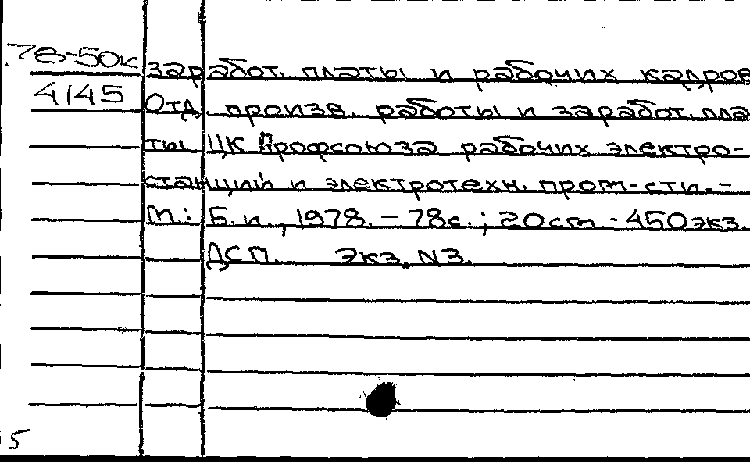 78-50к
4145
заработ. платы и рабочих кадров
Отд. произв. работы и заработ. пла-
ты ЦК Профсоюза рабочих электро-
станций и электротехн. пром-сти. -
М.: Б. и., 1978. - 78с.; 20ст - 450экз.
ДСП. Экз. N3.
5